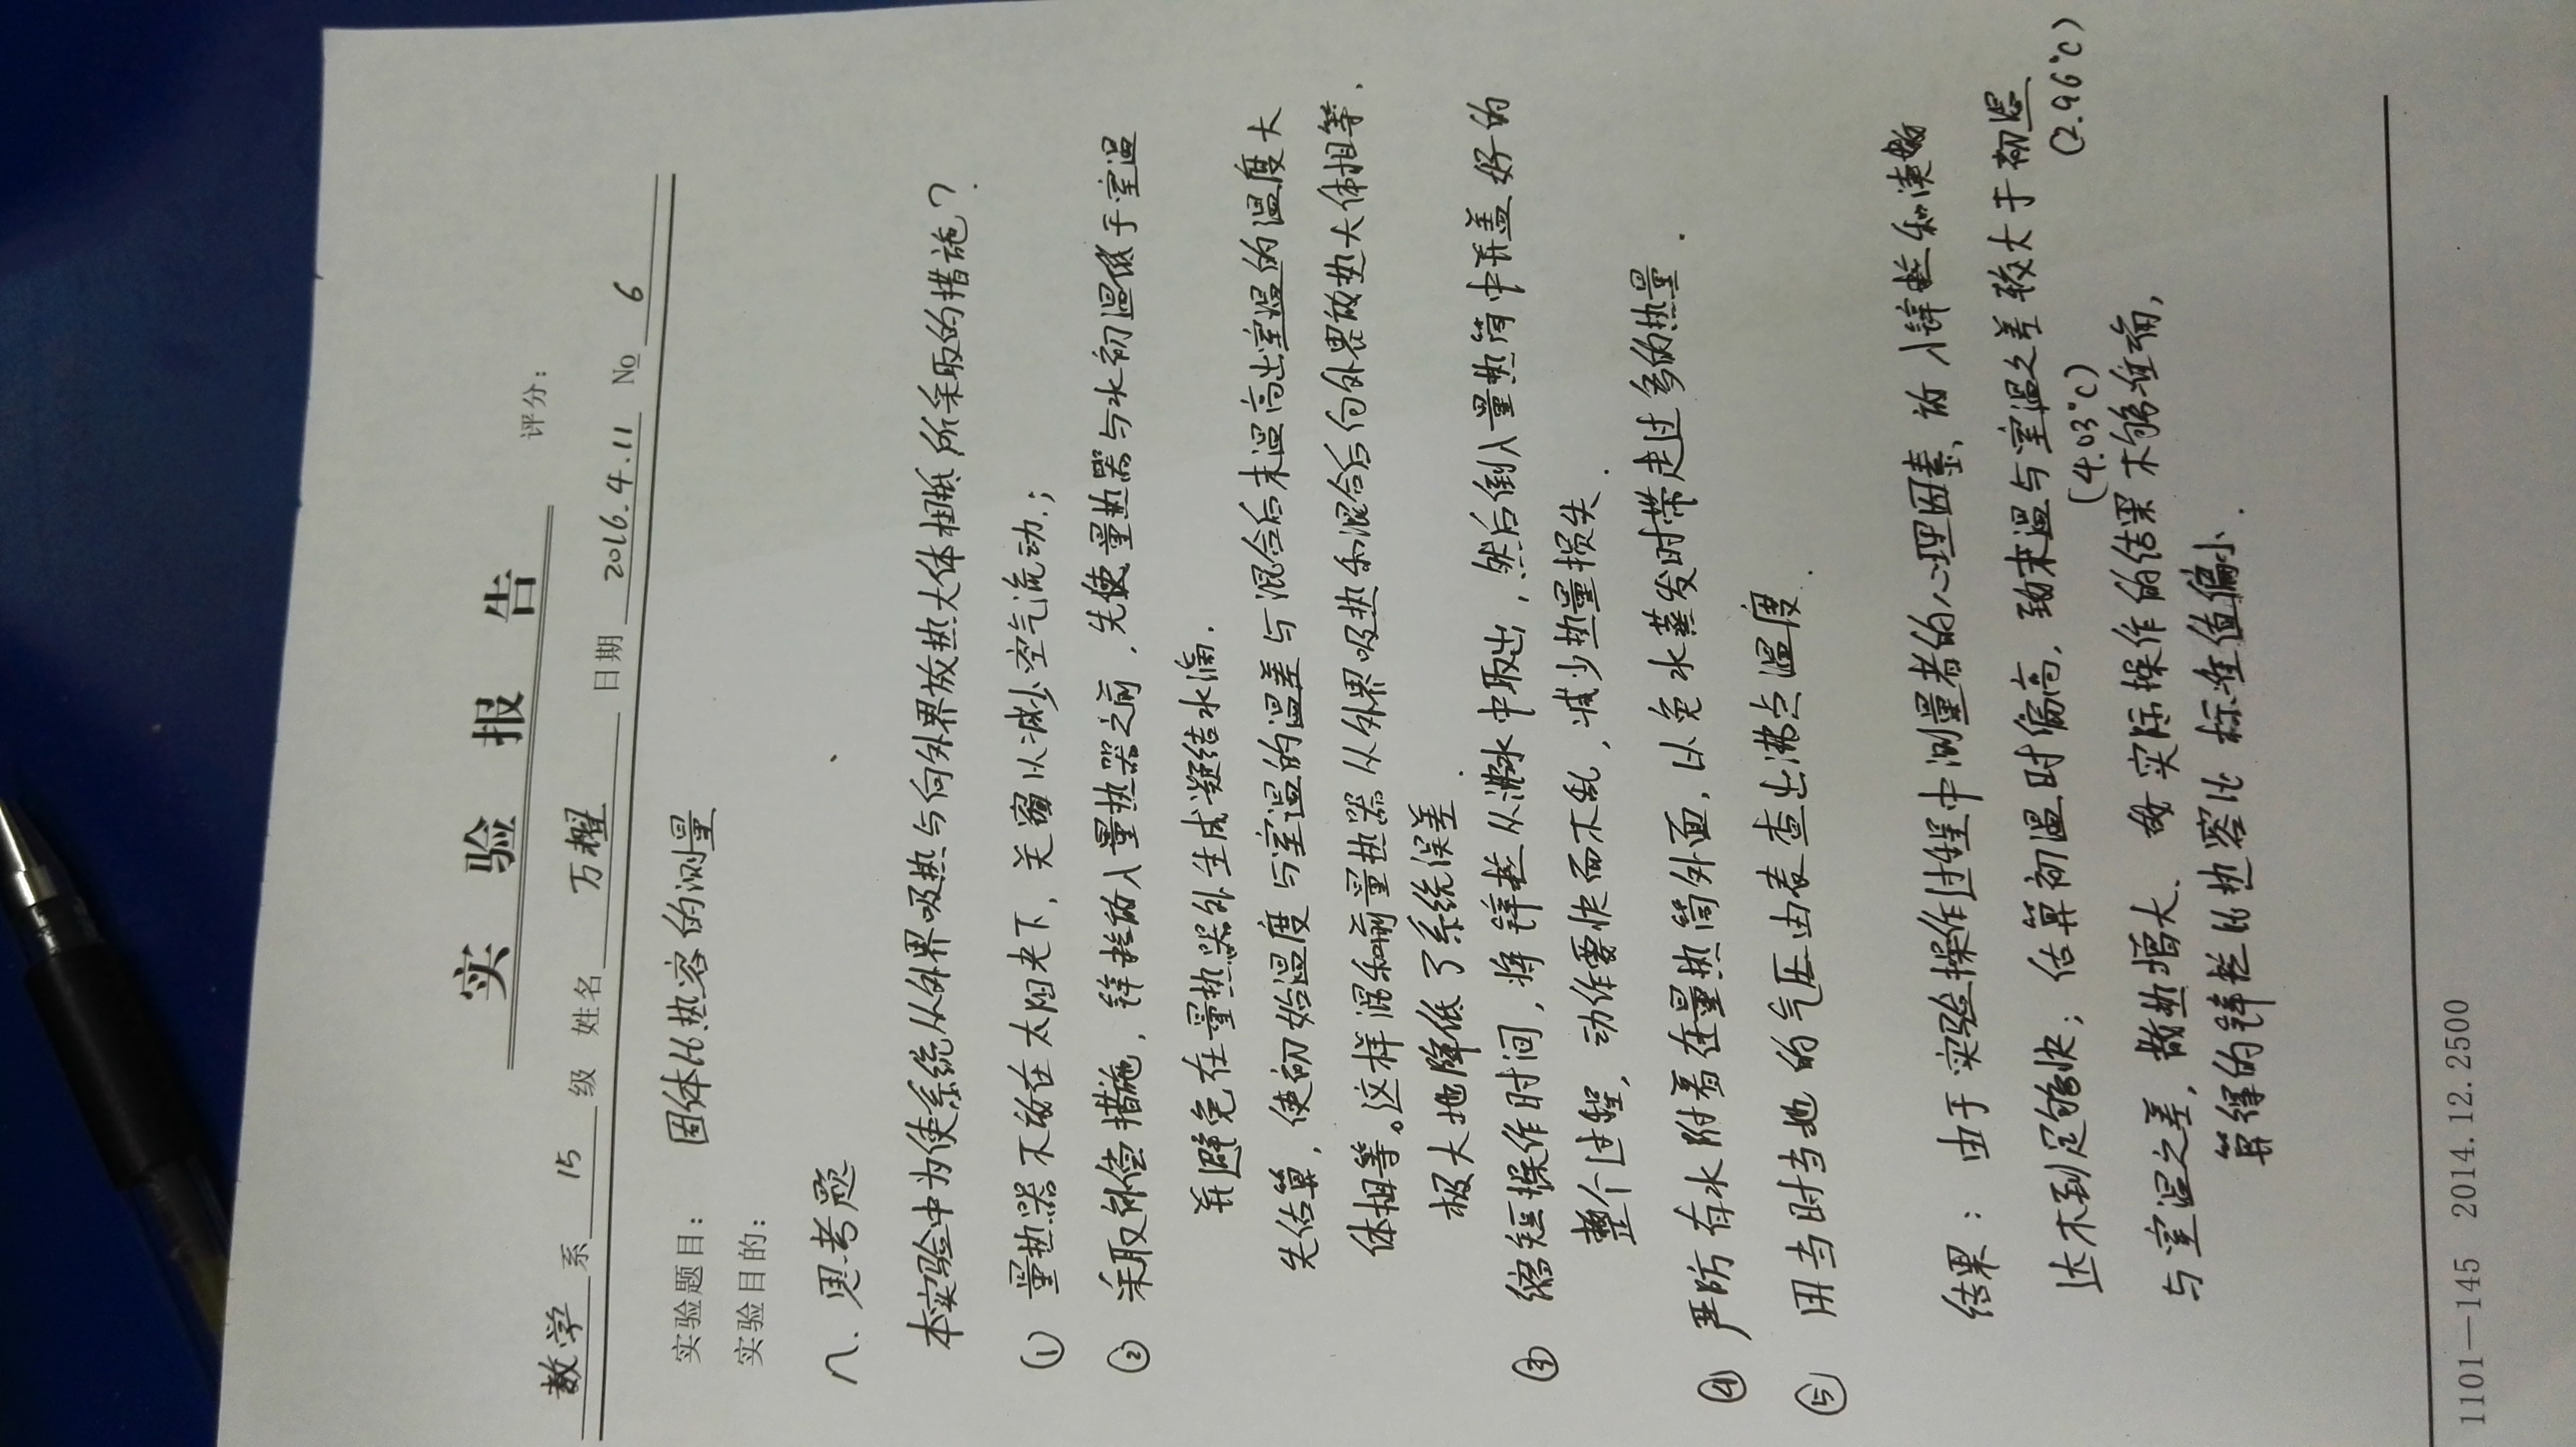 实验报告
评分：
数学系 15 级 姓名 万耀 日期 2016.4.11 No 6
实验题目：固体比热容的测量
实验目的：
八、思考题
本实验中为使系统从外界吸热与向外界放热大体相抵所采取的措施？
① 量热器不放在太阳光下，关窗以减少空气流动；
② 采取补偿措施，锌粒放入量热器之前，先使量热器与水初温低于室温
并避免在量热器外生成凝结水滴．
先估算，使初始温度与室温的温差与混合后末温高出室温的温度大
体相等。这样混和前量热器从外界吸热和混合后向外界放热大体相等．
极大地降低了系统误差．
③ 缩短操作时间，将锌粒从沸水中取出，然后倒入量热筒中并盖好的
整个过程，动作要快而不乱，减少热量损失．
④ 严防有水附着在量热筒外面，以免水蒸发时带走过多的热量．
⑤ 用当时当地的气压由表查出沸点温度．
结果：由于实验操作过程中测量者的心理因素，放入锌粒和读数
达不到足够快；估算初温时偏高，致末温与室温之差较大于初温
(4.03℃) (2.96℃)
与室温之差，散热增大、 实际操作的结果不够准确，
算得的锌粒比热容比标准值偏小．
1101—145 2014.12.2500